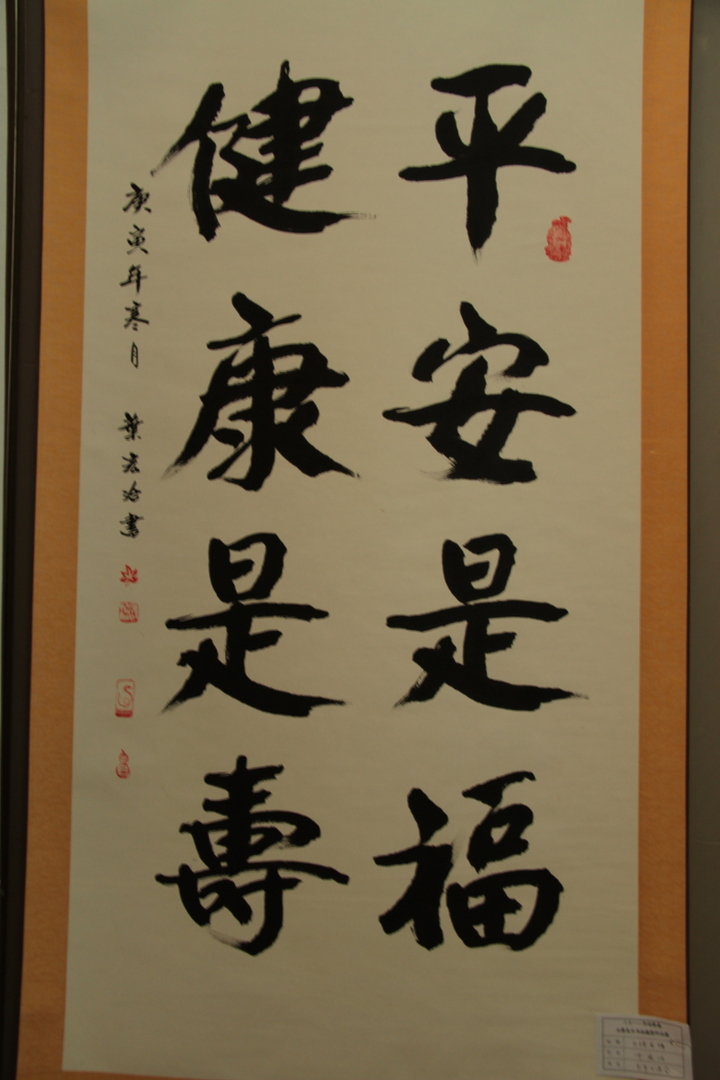 平安是福
健康是壽
庚寅年寒月 葉宏　書